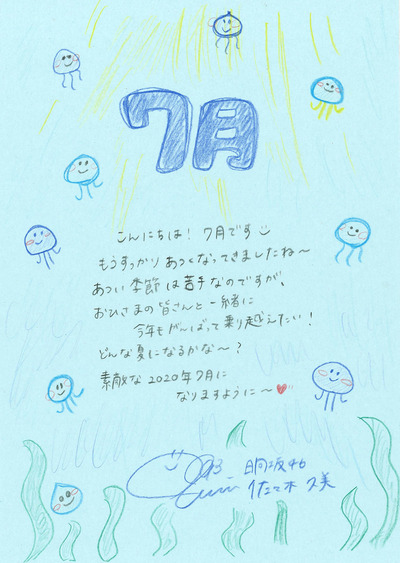 7月
こんにちは！7月です
もうすっかりあつくなってきましたね〜
あつい季節は苦手なのですが、
おひさまの皆さんと一緒に
今年もがんばって乗り越えたい！
どんな夏になるかな〜？
素敵な2020年7月に
なりますように〜
日向坂46
佐々木久美